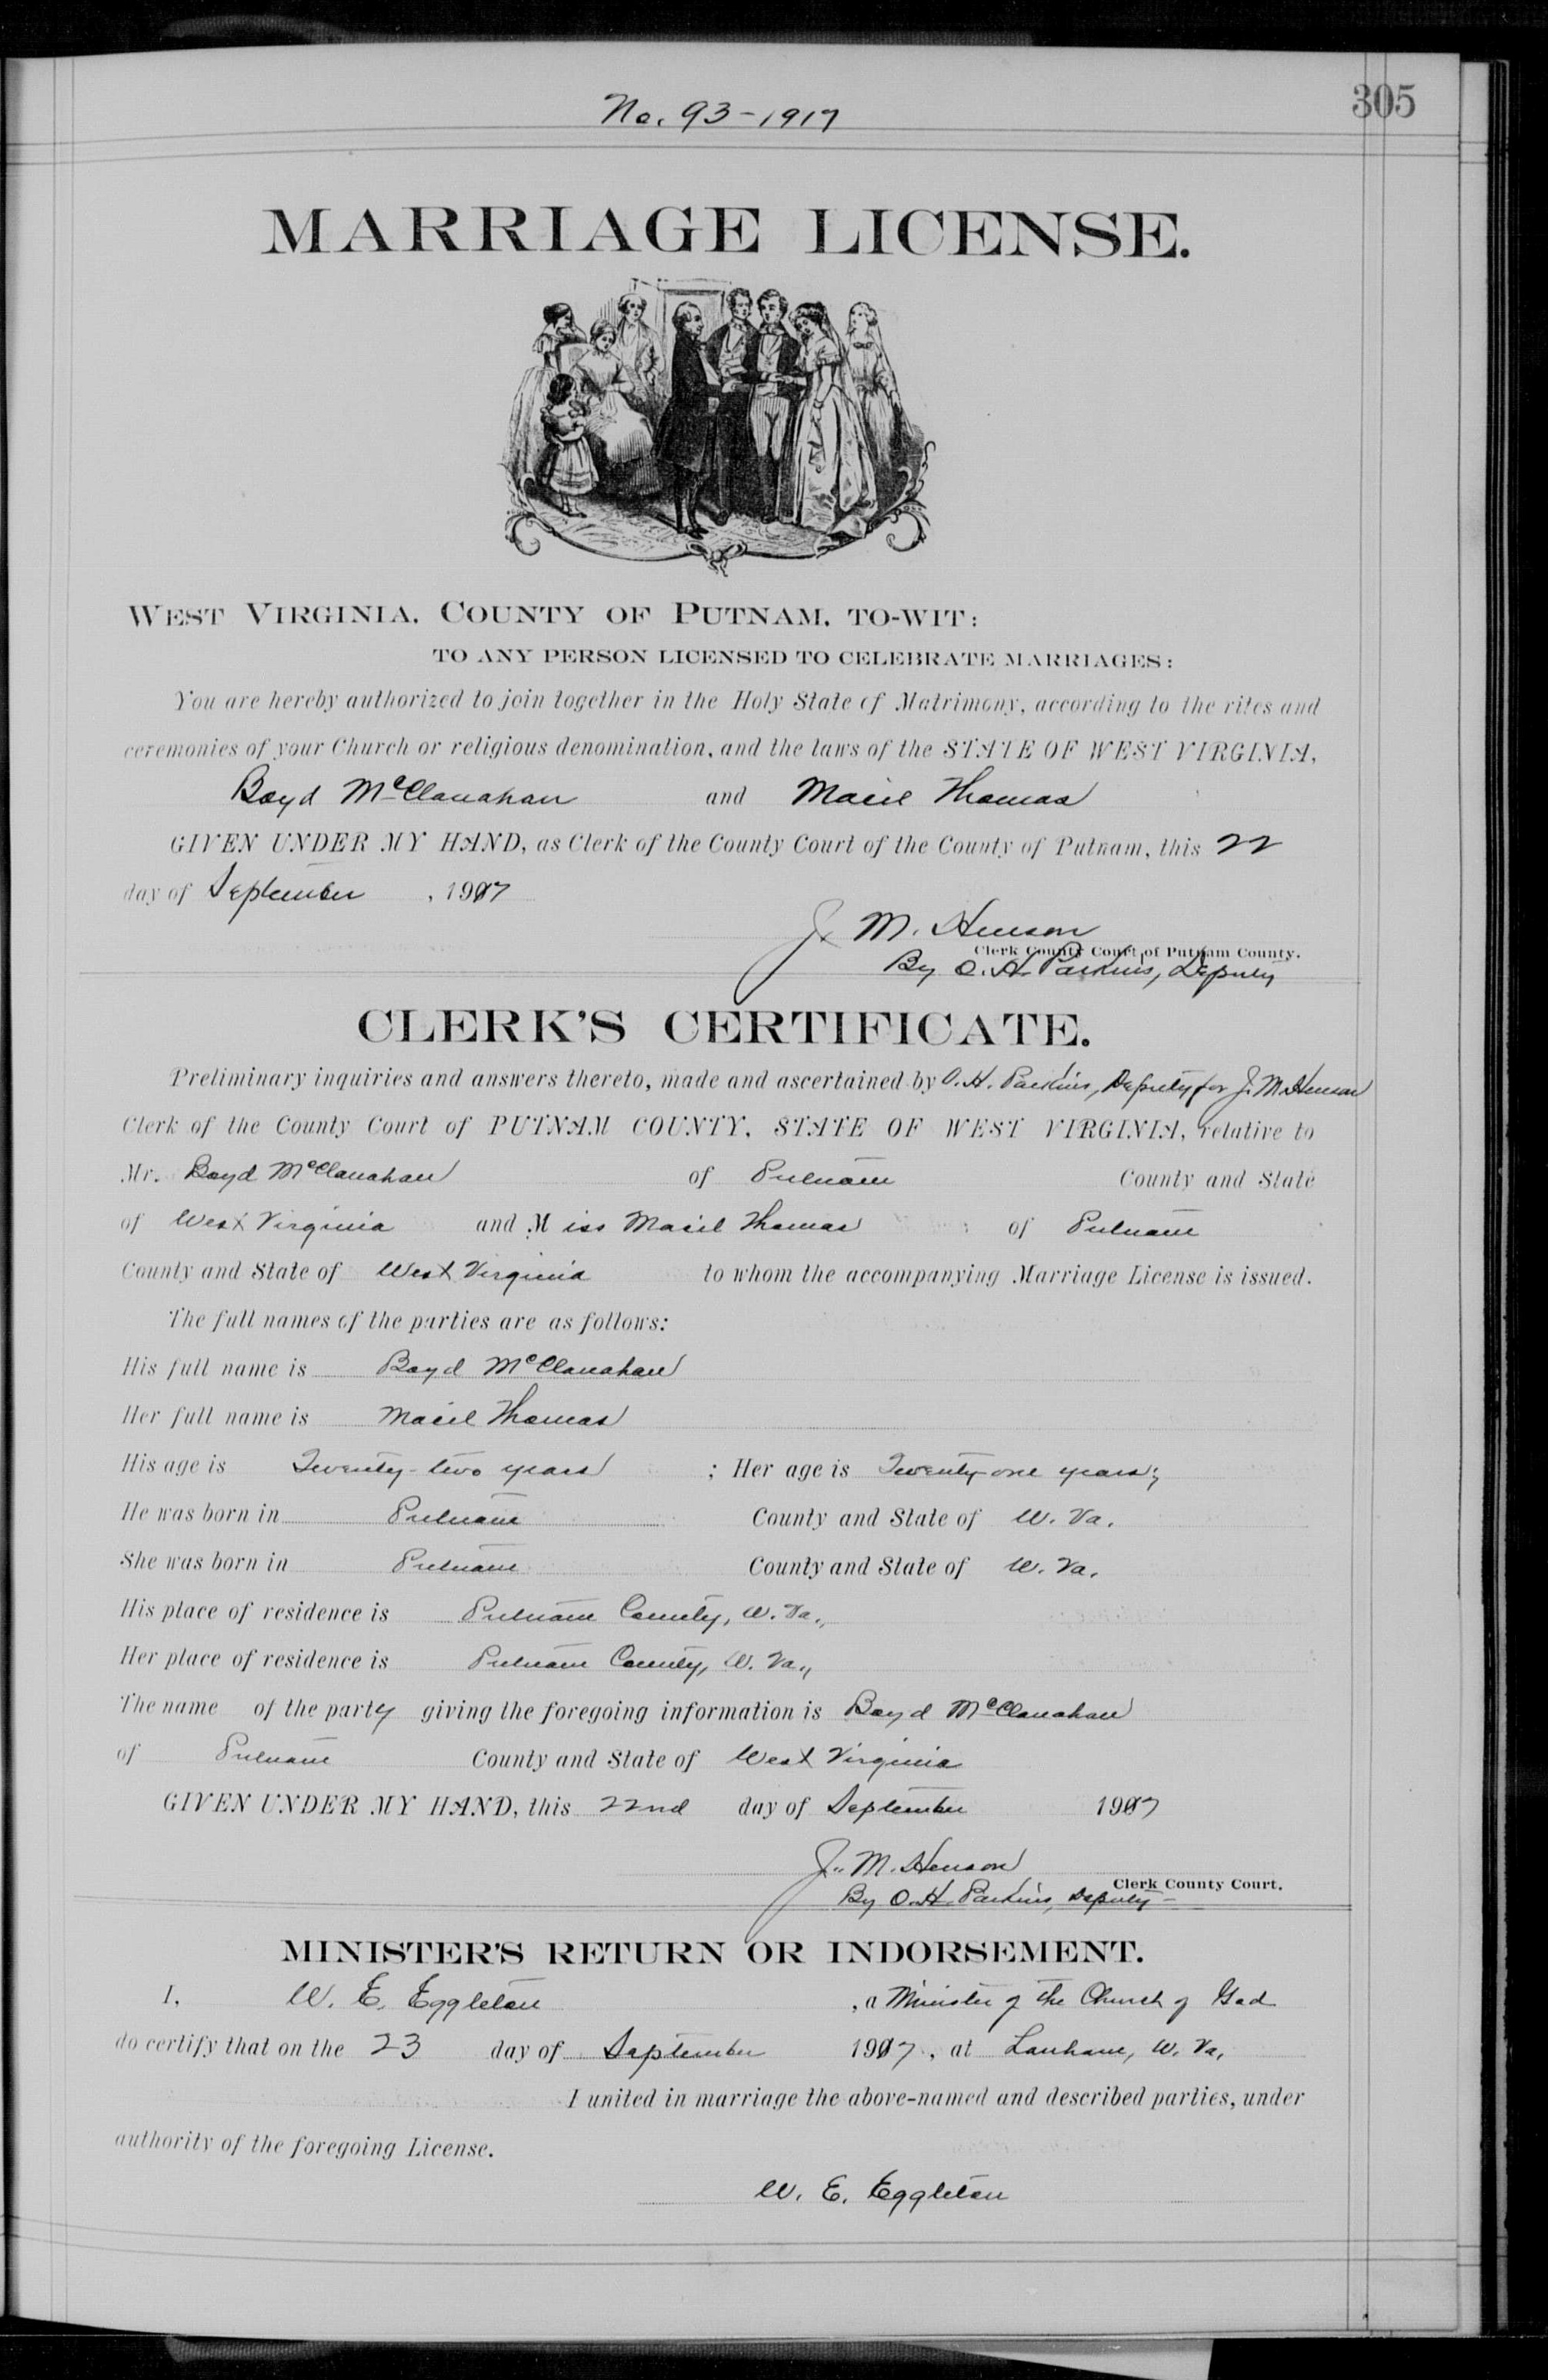 305
No. 93-1917
MARRIAGE LICENSE.
WEST VIRGINIA, COUNTY OF PUTNAM, TO-WIT:
TO ANY PERSON LICENSED TO CELEBRATE MARRIAGES:
You are hereby authorized to join together in the Holy State of Matrimony, according to the rites and
ceremonies of your Church or religious denomination, and the laws of the STATE OF WEST VIRGINIA,
Boyd McClanahan and Macil Thomas
GIVEN UNDER MY HAND, as Clerk of the County Court of the County of Putnam, this 22
day of September, 1917
J. M. Henson
Clerk County Court of Putnam County.
By O. H. Parkins, Deputy
CLERK'S CERTIFICATE.
Preliminary inquiries and answers thereto, made and ascertained by O. H. Parkins, Deputy for J. M. Henson
Clerk of the County Court of PUTNAM COUNTY, STATE OF WEST VIRGINIA, relative to
Mr. Boyd McClanahan of Putnam County and State
of West Virginia and Miss Macil Thomas of Putnam
County and State of West Virginia to whom the accompanying Marriage License is issued.
The full names of the parties are as follows:
His full name is Boyd McClanahan
Her full name is Macil Thomas
His age is Twenty-two years ; Her age is Twenty-one years;
He was born in Putnam County and State of W. Va.
She was born in Putnam County and State of W. Va.
His place of residence is Putnam County, W. Va.,
Her place of residence is Putnam County, W. Va.,
The name of the party giving the foregoing information is Boyd McClanahan
of Putnam County and State of West Virginia
GIVEN UNDER MY HAND, this 22nd day of September 1917
J. M. Henson
Clerk County Court.
By O. H. Parkins, Deputy-
MINISTER'S RETURN OR INDORSEMENT.
I, W. E. Eggleton, a Minister of the Church of God
do certify that on the 23 day of September 1917, at Lanham, W. Va.
I united in marriage the above-named and described parties, under
authority of the foregoing License.
W. E. Eggleton